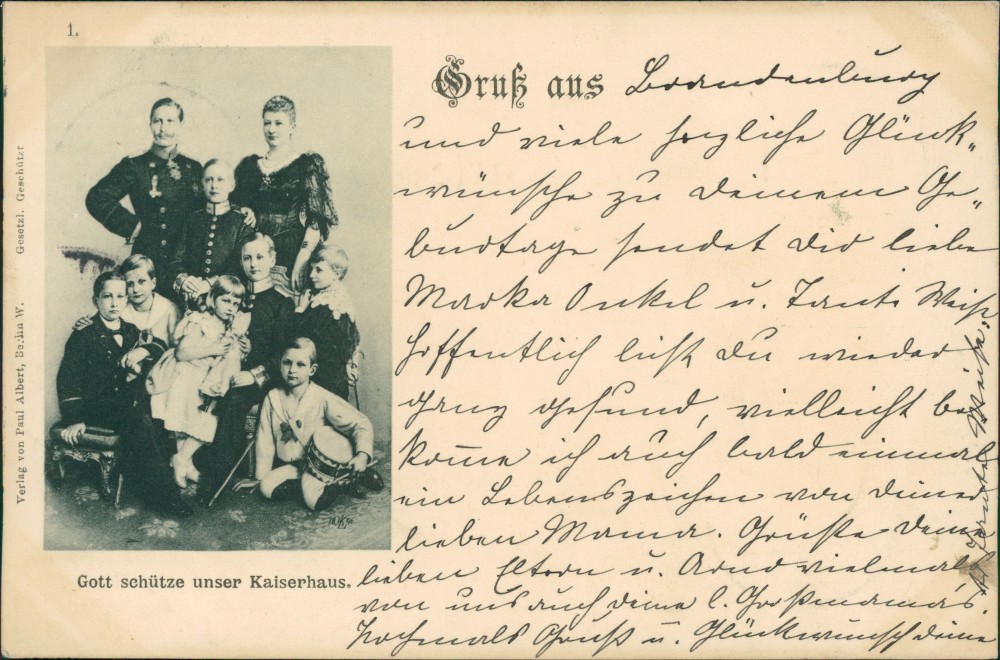 1.
Gruß aus Brandenburg
und viele herzliche Glück„
wünsche zu Deinem Ge„
burtage sendet Dir liebe
Marka Onkel u. Tante Weiß.
Hoffentlich bist Du wieder
ganz gesund, vielleicht be
komme ich auch bald einmal
ein Lebenszeichen von Deiner
lieben Mama. Grüße Deine
lieben Eltern u. Arnd vielmals
von uns auch Deine l. Großmama's.
Nochmals Gruß u. Glückwunsch deine
Tante Weiß.
Gott schütze unser Kaiserhaus.
Verlag von Paul Albert, Berlin W. Gesetzl. Geschützt